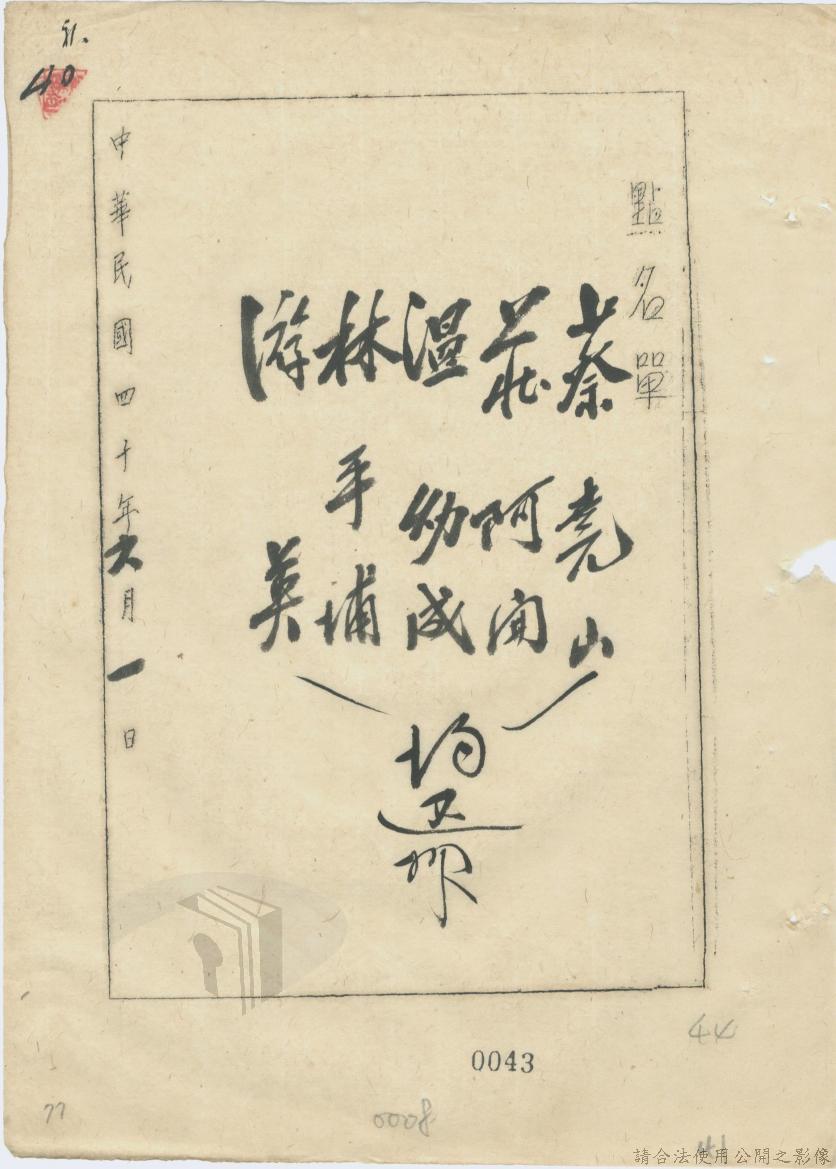 點名單
蔡堯山
莊阿開
温幼成
林平埔
游英
均還押
中華民國四十年六月一日
40
0043
44
77
0008
請合法使用公開之影像